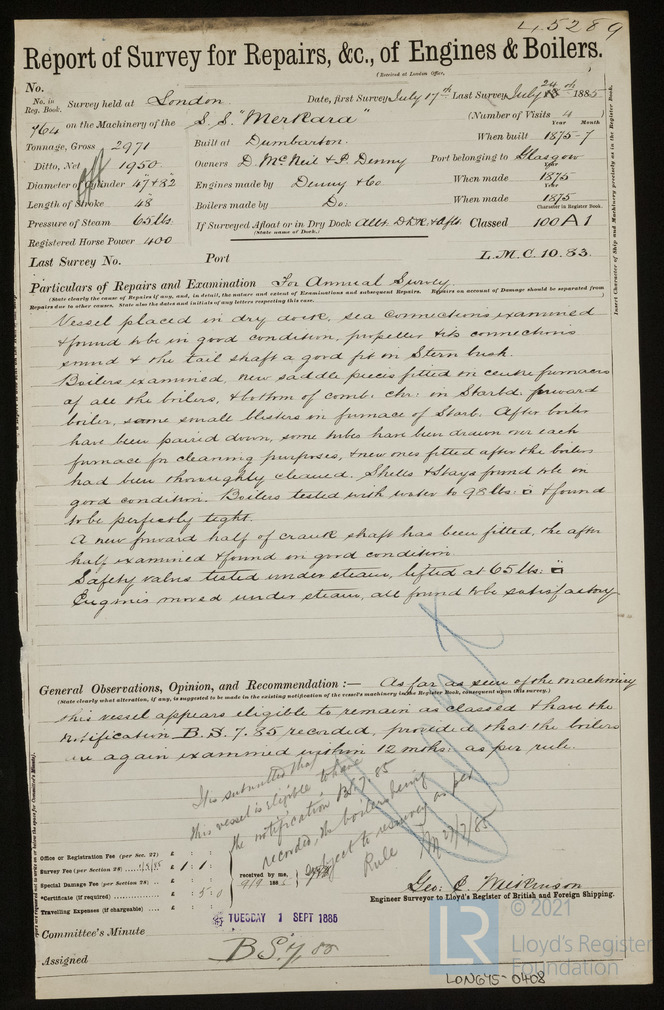 45289
Report of Survey for Repairs, &c., of Engines & Boilers.
(Received at London Office,
No.
No. in Reg. Book. Survey held at London Date, first Survey July 17th Last Survey July 24th 1885
764 on the Machinery of the S.S. "Merkara" (Number of Visits 4
Year Month
Tonnage, Gross 2971 Built at Dumbarton. When built 1875-7
Ditto, Net 1950 Owners D. McNeil & P. Denny Port belonging to Glasgow
Diameter of Cylinder 47 & 82 Engines made by Denny & Co When made 1875
Length of Stroke 48 Boilers made by Do: When made 1875
Character in Register Book.
Pressure of Steam 65 lbs. If Surveyed Afloat or in Dry Dock Classed 100 A 1
(State name of Dock.)
Registered Horse Power 400
Last Survey No. Port L.M.C. 10.83.
Insert Character of Ship and Machinery precisely as in the Register Book.
Particulars of Repairs and Examination For Annual Survey
(State clearly the cause of Repairs if any, and, in detail, the nature and extent of Examinations and subsequent Repairs. Repairs on account of Damage should be separated from
Repairs due to other causes. State also the dates and initials of any letters respecting this case.
Vessel placed in dry dock, sea connections examined
& found to be in good condition, propeller & its connections
sound & the tail shaft a good fit on Stern bush.
Boilers examined, new saddle pieces fitted on centre furnaces
of all the boilers, & bottom of comb. chr: on Starbd. forward
boiler, some small blisters on furnace of Starb. After boiler
have been paired down, some tubes have been drawn over each
furnace for cleaning purposes, & new ones fitted after the boilers
had been thoroughly cleaned. Shells & Stays found to be in
good condition. Boilers tested with water to 98 lbs: & found
to be perfectly tight.
A new forward half of crank shaft has been fitted, the after
half examined & found in good condition.
Safety valves tested under steam, lifted at 65 lbs:
Engines moved under steam, all found to be satisfactory
General Observations, Opinion, and Recommendation :— As far as seen of the machinery
(State clearly what alteration, if any, is suggested to be made in the existing notification of the vessel's machinery in the Register Book, consequent upon this survey.)
this vessel appears eligible to remain as classed & have the
notification B.S. 7.85 recorded, provided that the boilers
are again examined within 12 mths: as per rule.
It is submitted that
this vessel is eligible to have
the notification BS 7.85
recorded, the boilers being
subject to resurvey as per
Rule 27/7/85
Office or Registration Fee (per Sec. 27) £ : :
Survey Fee (per Section 28) £ 1 : 1 :
Special Damage Fee (per Section 28) £ : :
*Certificate (if required) £ : 5 : 0
Travelling Expenses (if chargeable) £ : :
received by me,
Geo: C. Wilkinson
Engineer Surveyor to Lloyd's Register of British and Foreign Shipping.
TUESDAY 1 SEPT 1885
Committee's Minute
Assigned B S. 7. 85
© 2021
LR
Lloyd's Register
Foundation
LON645-0408